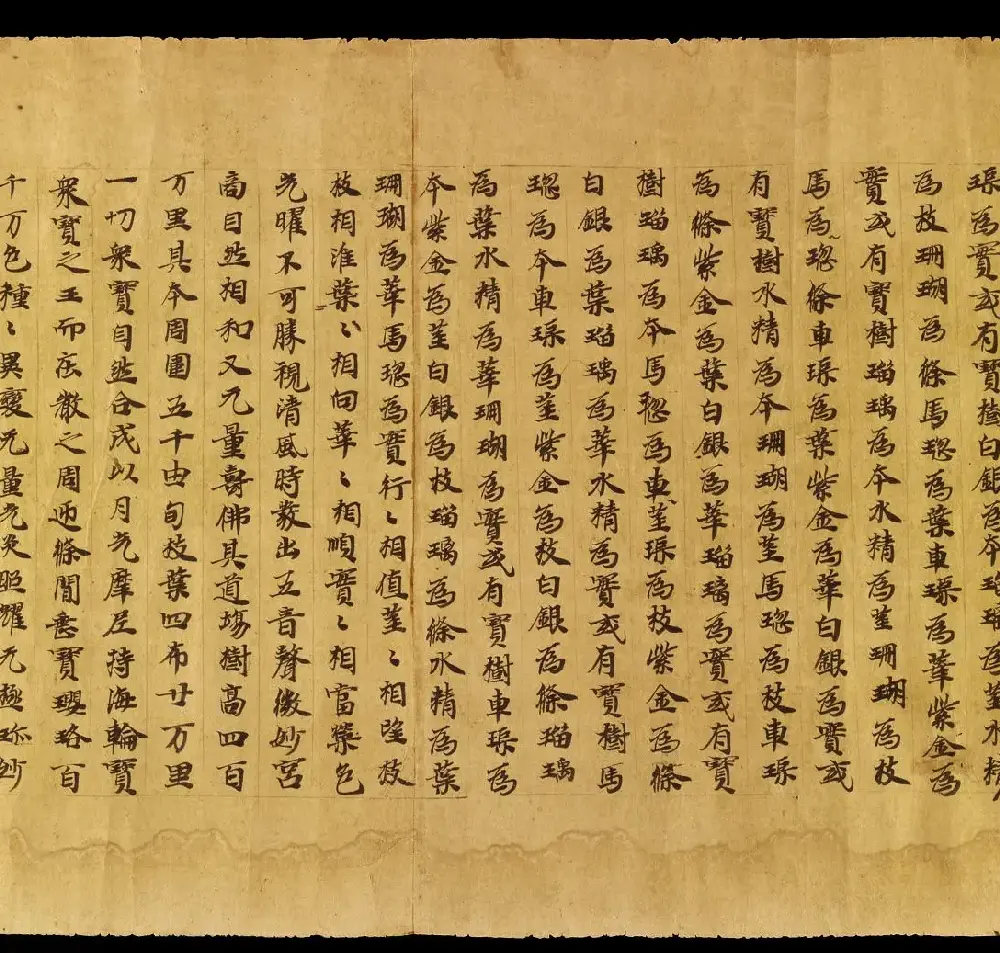 璖為實或有寶樹白銀為本瑠璃為莖水精
為枝珊瑚為條馬瑙為葉車璖為華紫金為
實或有寶樹瑠璃為本水精為莖珊瑚為枝
馬瑙為條車璖為葉紫金為華白銀為實或
有寶樹水精為本珊瑚為莖馬瑙為枝車璖
為條紫金為葉白銀為華瑠璃為實或有寶
樹瑠璃為本馬瑙為車莖璖為枝紫金為條
白銀為葉瑠璃為華水精為實或有寶樹馬
瑙為本車璖為莖紫金為枝白銀為條瑠璃
為葉水精為華珊瑚為實或有寶樹車璖為
本紫金為莖白銀為枝瑠璃為條水精為葉
珊瑚為華馬瑙為實行〻相值莖〻相望枝
枝相准葉〻相向華〻相順實〻相當榮色
光曜不可勝視清風時發出五音聲微妙宮
商自然相和又无量壽佛其道場樹高四百
万里其本周圍五千由旬枝葉四布廿万里
一切衆寶自然合成以月光摩尼持海輪寶
衆寶之王而莊嚴之周迊條間垂寶瓔珞百
千万色種〻異變无量光炎照耀无極珎妙